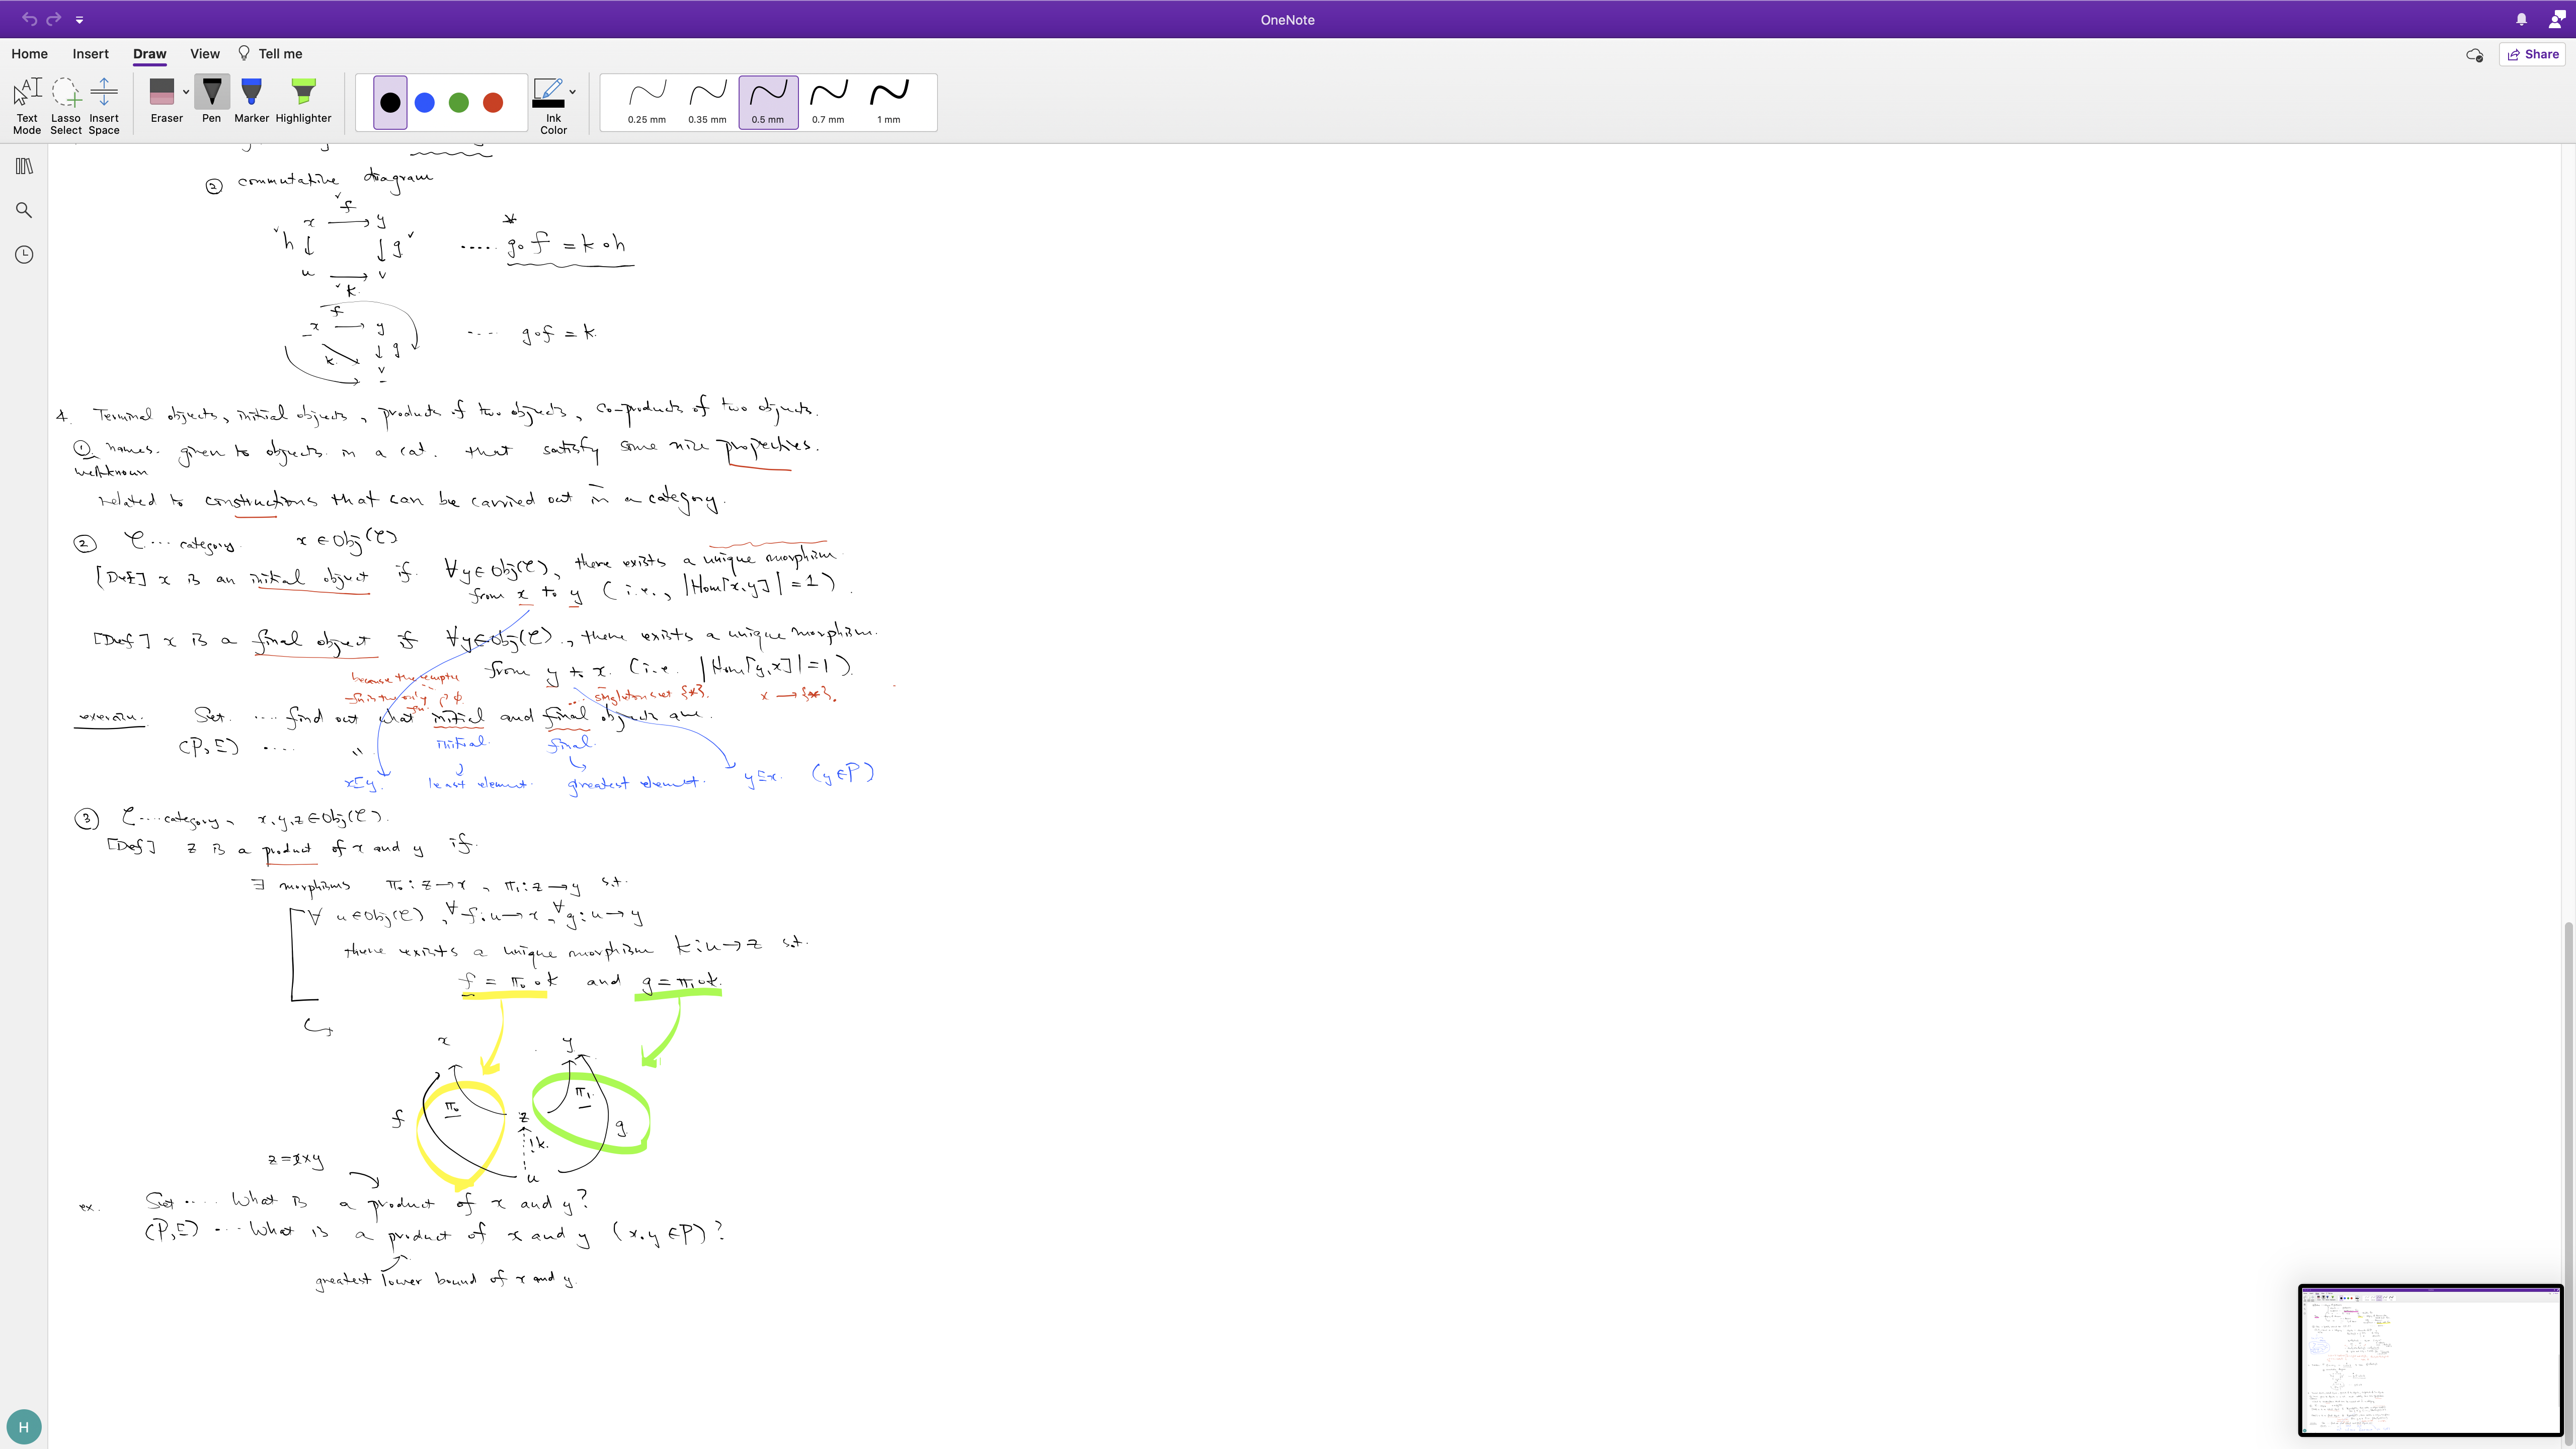 OneNote
Home Insert Draw View Tell me Share
Text Mode
Lasso Select
Insert Space
Eraser
Pen
Marker
Highlighter
Ink Color
0.25 mm 0.35 mm 0.5 mm 0.7 mm 1 mm
② commutative diagram
f
x → y
h ↓ ↓ g ..... g∘f = k∘h
u → v
k
f
x → y .... g∘f = k.
k ↓ g
v
4. Terminal objects, initial objects, products of two objects, co-products of two objects.
① names given to objects in a cat. that satisfy some nice properties.
well-known
related to constructions that can be carried out in a category.
② C ... category. x ∈ Obj(C)
[Def] x is an initial object if ∀y∈Obj(C), there exists a unique morphism
from x to y (i.e., |Hom[x,y]| = 1).
[Def] x is a final object if ∀y∈Obj(C), there exists a unique morphism
from y to x. (i.e. |Hom[y,x]| = 1).
because the empty
fn is the only fn. ∅ singleton set {*}. x → {*}.
exercise. Set .... find out what initial and final objects are.
(P,⊑) .... " initial. final.
x⊑y. least element. greatest element. y⊑x. (y∈P)
③ C ... category, x,y,z∈Obj(C).
[Def] z is a product of x and y if
∃ morphisms π₀: z→x, π₁: z→y s.t.
∀ u∈Obj(C), ∀f:u→x, ∀g:u→y
there exists a unique morphism k:u→z s.t.
f = π₀∘k and g = π₁∘k.
x y
π₀ π₁
f z g
!k.
u
z=x×y
ex. Set .... What is a product of x and y?
(P,⊑) ... What is a product of x and y (x,y∈P)?
greatest lower bound of x and y.
H